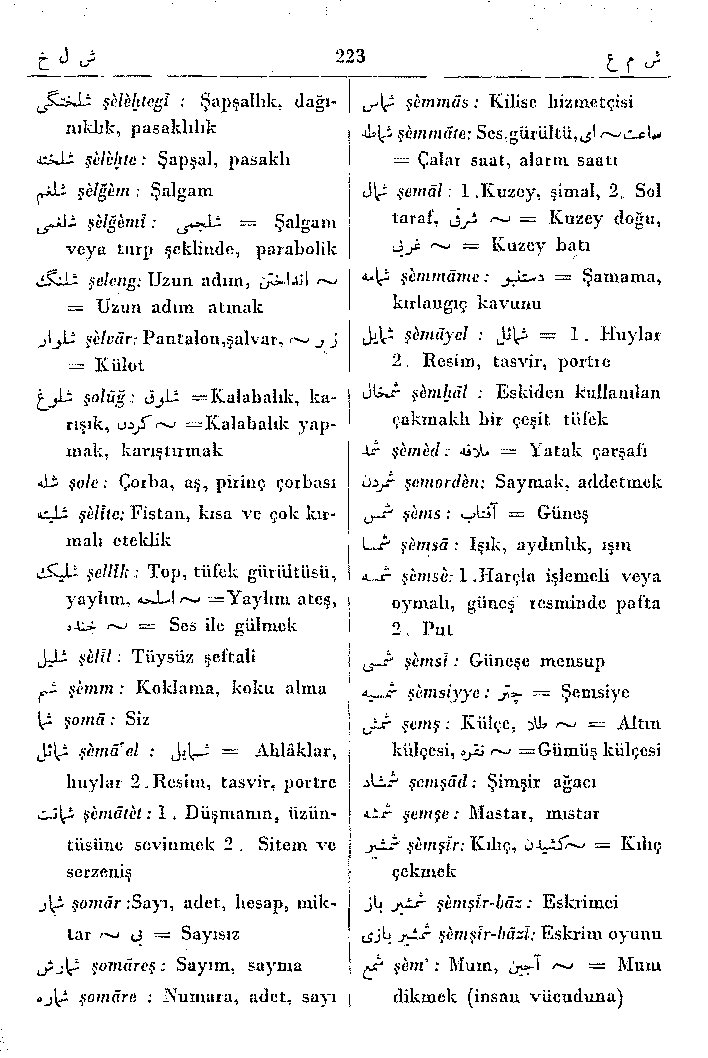 ش ل خ 223 ش م ع
شلختگی şèlèḫtegî : Şapşallık, dağı-
nıklık, pasaklılık
شلخته şèlèḫte: Şapşal, pasaklı
شلغم şèlğèm : Şalgam
شلغمی şèlğèmî : شلجمی = Şalgam
veya turp şeklinde, parabolik
شلنگ şeleng: Uzun adım, انداختن ~
= Uzun adım atmak
شلوار şèlvār: Pantalon,şalvar, ~ زر
= Külot
شلوغ şolūğ : شلوق =Kalabalık, ka-
rışık, کردن ~ =Kalabalık yap-
mak, karıştırmak
شله şole: Çorba, aş, pirinç çorbası
شلیته şèlîte: Fistan, kısa ve çok kır-
malı eteklik
شلیک şellîk : Top, tüfek gürültüsü,
yaylım, اسلحه ~ =Yaylım ateş,
خنده ~ = Ses ile gülmek
شلیل şèlîl : Tüysüz şeftali
شم şèmm : Koklama, koku alma
شما şomā : Siz
شمائل şèmā'el : شمایل = Ahlâklar,
huylar 2.Resim, tasvir, portre
شماتت şèmātèt: 1. Düşmanın, üzün-
tüsüne sevinmek 2. Sitem ve
serzeniş
شمار şomār :Sayı, adet, hesap, mik-
tar ~ بی = Sayısız
شمارش şomāreş : Sayım, sayma
شماره şomāre : Numara, adet, sayı
شماس şèmmās : Kilise hizmetçisi
شماطه şèmmāte: Ses,gürültü, ساعت ~ ای
= Çalar saat, alarm saatı
شمال şemāl : 1.Kuzey, şimal, 2. Sol
taraf, شرق ~ = Kuzey doğu,
غرب ~ = Kuzey batı
شمامه şèmmāme : دستنبو = Şamama,
kırlangıç kavunu
شمایل şèmāyel : شمائل = 1. Huylar
2. Resim, tasvir, portre
شمخال şèmḫāl : Eskiden kullanılan
çakmaklı bir çeşit tüfek
شمد şèmèd : ملافه = Yatak çarşafı
شمردن şemordèn: Saymak, addetmek
شمس şèms : آفتاب = Güneş
شمسا şèmsā : Işık, aydınlık, ışın
شمسه şèmsè: 1.Harçla işlemeli veya
oymalı, güneş resminde pafta
2. Put
شمسی şèmsî : Güneşe mensup
شمسیه şèmsiyye : چتر = Şemsiye
شمش şemş : Külçe, طلا ~ = Altın
külçesi, نقره ~ =Gümüş külçesi
شمشاد şemşād : Şimşir ağacı
شمشه şemşe : Mastar, mıstar
شمشیر şèmşîr: Kılıç, کشیدن ~ = Kılıç
çekmek
شمشیر باز şèmşîr-bāz : Eskrimci
شمشیر بازی şèmşîr-bāzî: Eskrim oyunu
شمع şèm' : Mum, آجین ~ = Mum
dikmek (insan vücuduna)